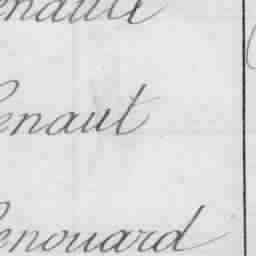 enault
enaut
enouard